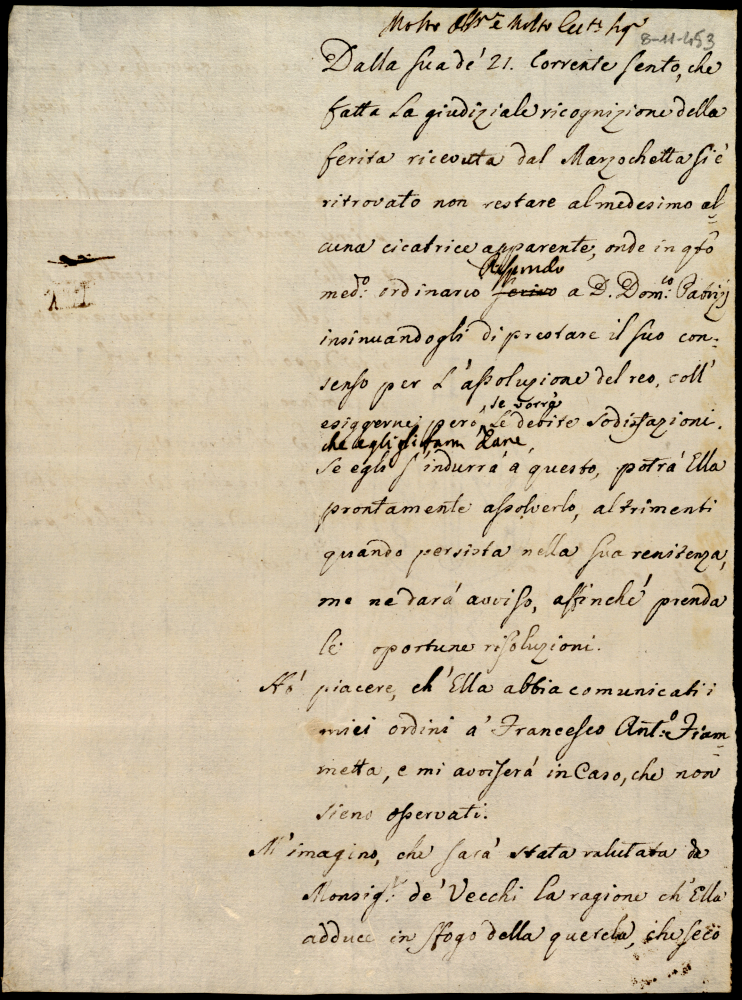 Molto Ill:re e Molto Ecc:te Sig:re
8-11-453
Dalla sua de' 21. Corrente sento, che
fatta la giudiziale ricognizione della
ferita ricevuta dal Marzochetta si è
ritrovato non restare al medesimo al=
cuna cicatrice apparente, onde in qsto
Rispondo
med:o ordinario scrivo a D. Dom:co Patrizj
insinuandogli di prestare il suo con=
senso per l'assoluzione del reo, coll'
se vorrà
esiggerne però le debite sodisfazioni.
che egli gli farà dare,
Se egli s'indurrà a questo, potrà Ella
prontamente assolverlo, altrimenti
quando persista nella sua renitenza,
me ne darà avviso, affinché prenda
le oportune risoluzioni.
Hò piacere, ch'Ella abbia comunicati i
miei ordini a' Francesco Ant:o Fiam=
metta, e mi avviserà in Caso, che non
sieno osservati.
M'imagino, che sarà stata valutata da
Monsig:r de' Vecchi la ragione ch'Ella
adduce in sfogo della querela, che seco